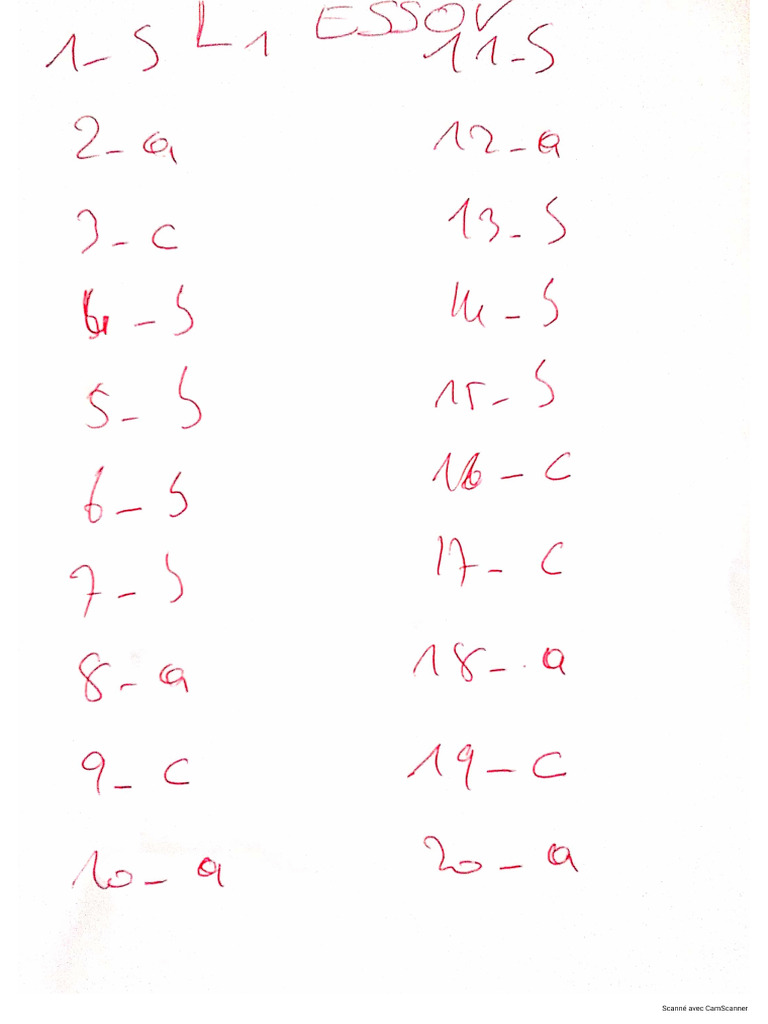 L1 ESSOV
1- S
2- a
3- c
4 - S
5- S
6- S
7- S
8- a
9- c
10- a
11-S
12-a
13-S
14-S
15-S
16-c
17- c
18- a
19-c
20-a
Scanné avec CamScanner